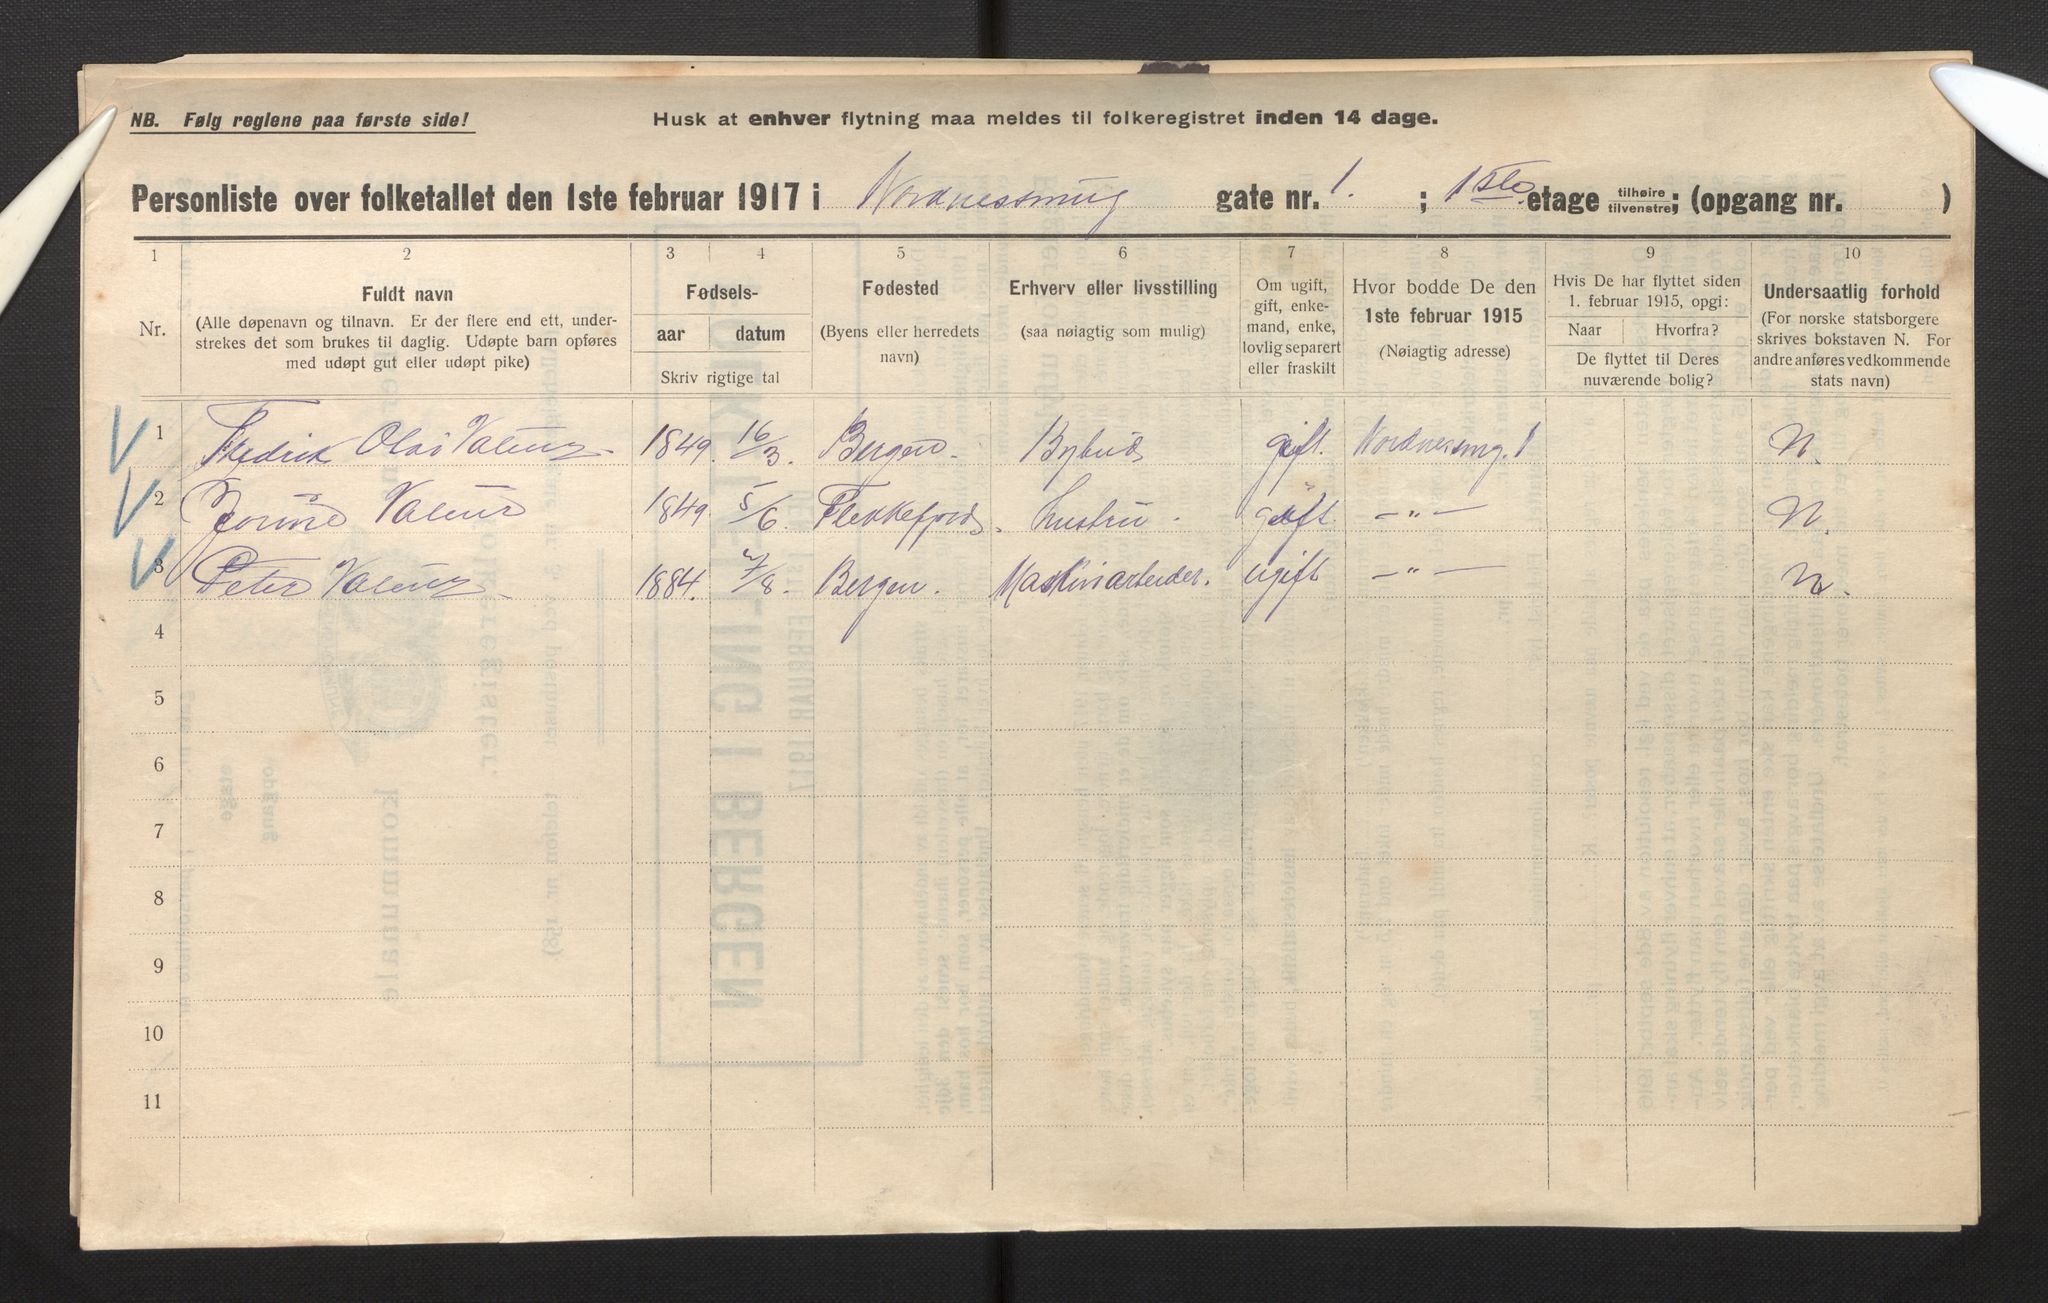 NB. Følg reglene paa første side! Husk at enhver flytning maa meldes til folkeregistret inden 14 dage.
Personliste over folketallet den 1ste februar 1917 i Nordnessmug gate nr. 1. ; 1ste etage tilhøire tilvenstre; (opgang nr. )
1 2 3 4 5 6 7 8 9 10
Nr.
Fuldt navn
(Alle døpenavn og tilnavn. Er der flere end ett, under-
strekes det som brukes til daglig. Udøpte barn opføres
med udøpt gut eller udøpt pike)
Fødsels-
aar datum
Skriv rigtige tal
Fødested
(Byens eller herredets
navn)
Erhverv eller livsstilling
(saa nøiagtig som mulig)
Om ugift,
gift, enke-
mand, enke,
lovlig separert
eller fraskilt
Hvor bodde De den
1ste februar 1915
(Nøiagtig adresse)
Hvis De har flyttet siden
1. februar 1915, opgi:
Naar Hvorfra?
De flyttet til Deres
nuværende bolig?
Undersaatlig forhold
(For norske statsborgere
skrives bokstaven N. For
andre anføres vedkommende
stats navn)
V 1 Fredrik Olai 1849. 16/3. Bergen. Bybud gift. Nordnesmug. 1 N.
V 2 1849 5/6. Flekkefjord. hustru. gift -"- N.
V 3 Peter 1884. 7/8. Bergen. Maskinarbeider. ugift -"- N.
4
5
6
7
8
9
10
11